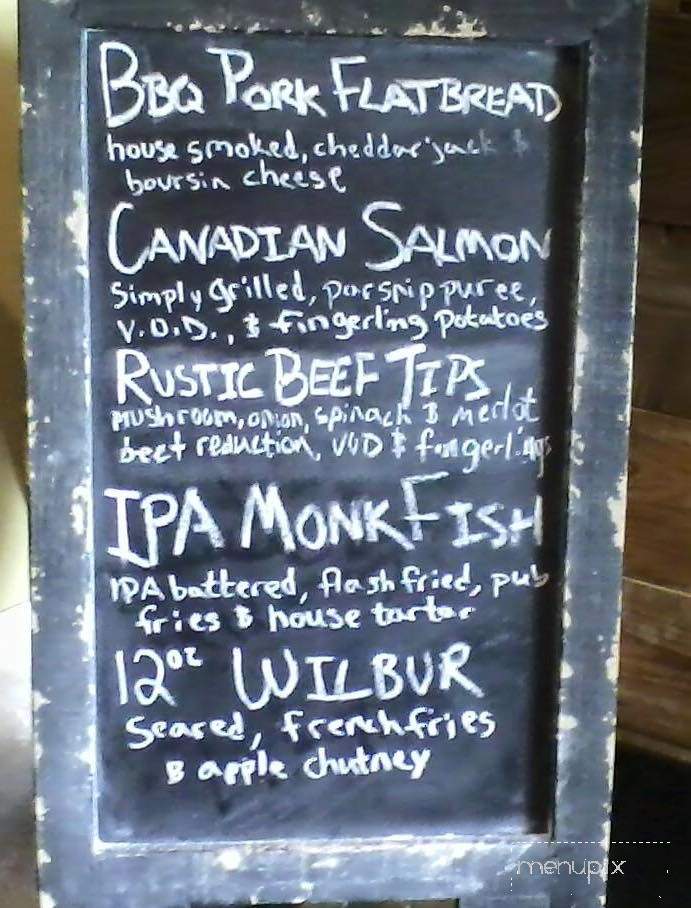 BBQ PORK FLATBREAD
house smoked, cheddar jack &
boursin cheese
CANADIAN SALMON
Simply grilled, parsnip puree,
V.O.D., & fingerling potatoes
RUSTIC BEEF TIPS
mushroom, onion, spinach & merlot
beet reduction, VOD & fingerlings
IPA MONKFISH
IPA battered, flash fried, pub
fries & house tartar
12oz WILBUR
Seared, french fries
& apple chutney
menupix